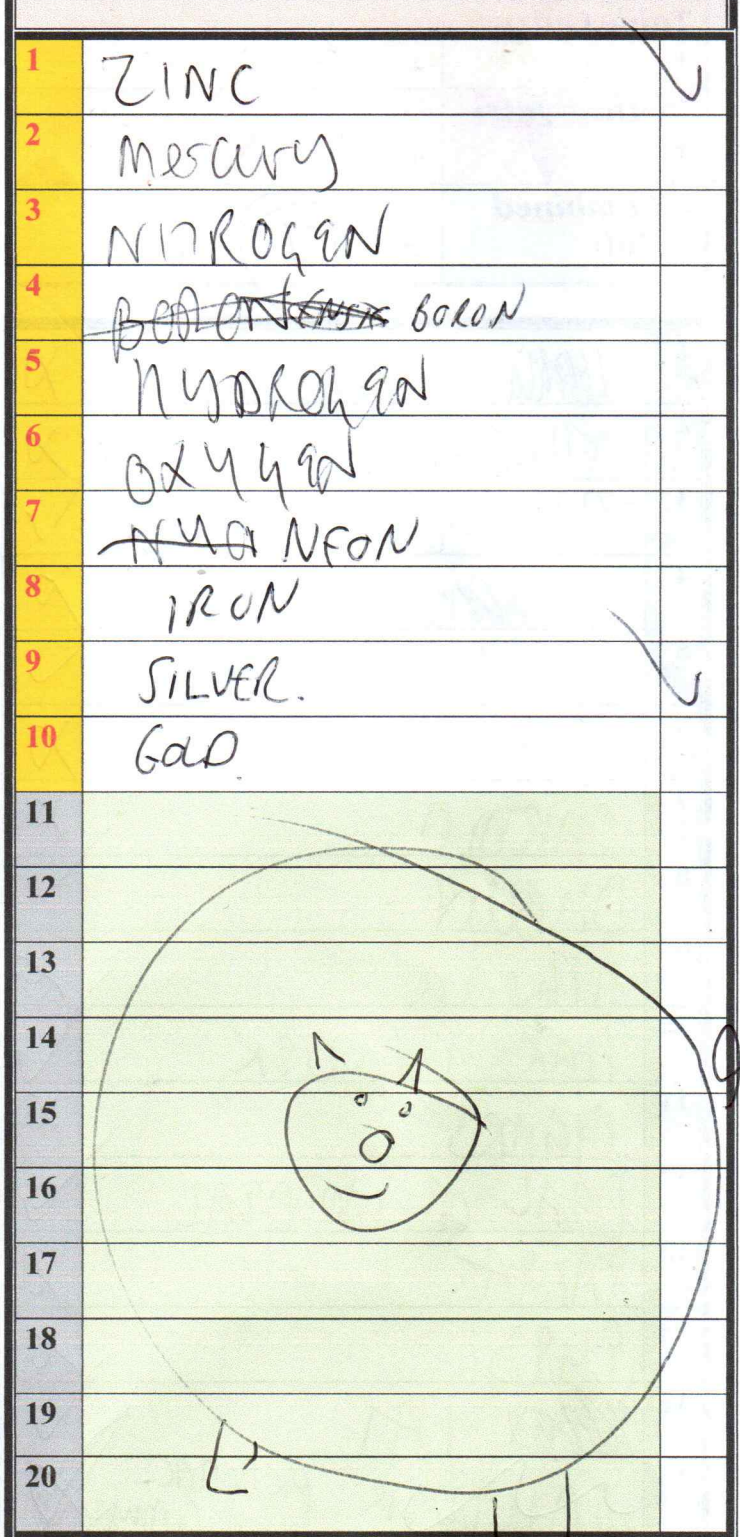 1 ZINC
2 Mercury
3 NITROGEN
4 BORON
5 HYDROGEN
6 OXYGEN
7 NEON
8 IRON
9 SILVER.
10 GOLD
11
12
13
14
15
16
17
18
19
20